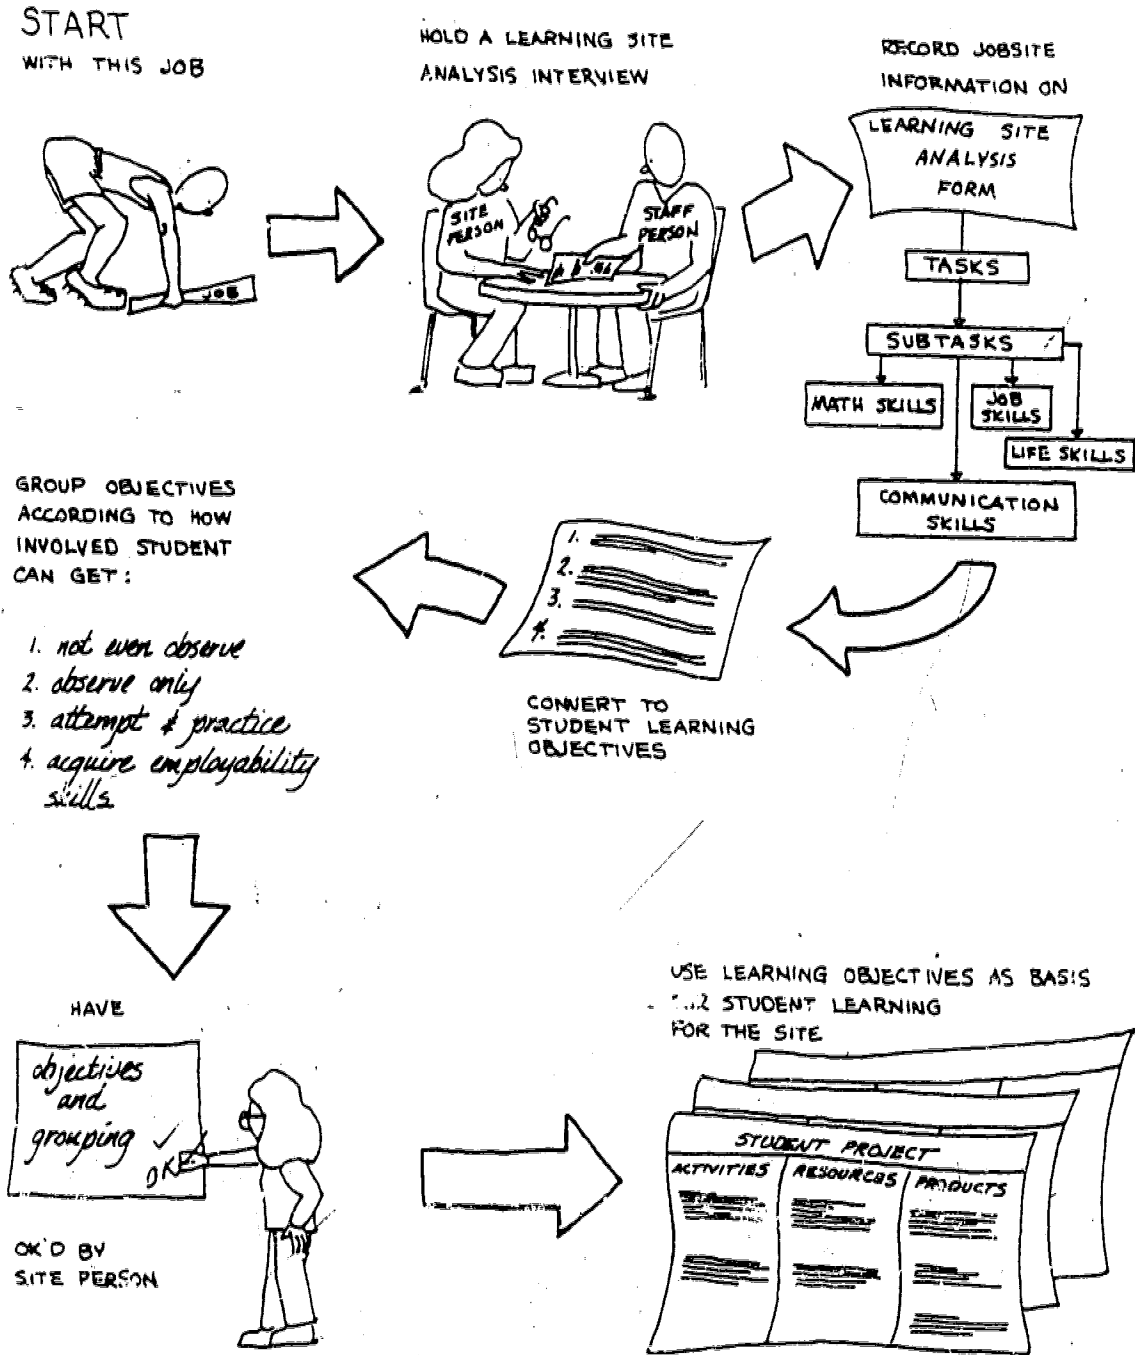 START
WITH THIS JOB
JOB
HOLD A LEARNING SITE
ANALYSIS INTERVIEW
SITE
PERSON
STAFF
PERSON
RECORD JOBSITE
INFORMATION ON
LEARNING SITE
ANALYSIS
FORM
TASKS
SUBTASKS
MATH SKILLS
JOB
SKILLS
LIFE SKILLS
COMMUNICATION
SKILLS
1.
2.
3.
4.
CONVERT TO
STUDENT LEARNING
OBJECTIVES
GROUP OBJECTIVES
ACCORDING TO HOW
INVOLVED STUDENT
CAN GET:
1. not even observe
2. observe only
3. attempt & practice
4. acquire employability
skills
HAVE
objectives
and
grouping ✓
OK
OK'D BY
SITE PERSON
USE LEARNING OBJECTIVES AS BASIS
STUDENT LEARNING
FOR THE SITE
STUDENT PROJECT
ACTIVITIES RESOURCES PRODUCTS